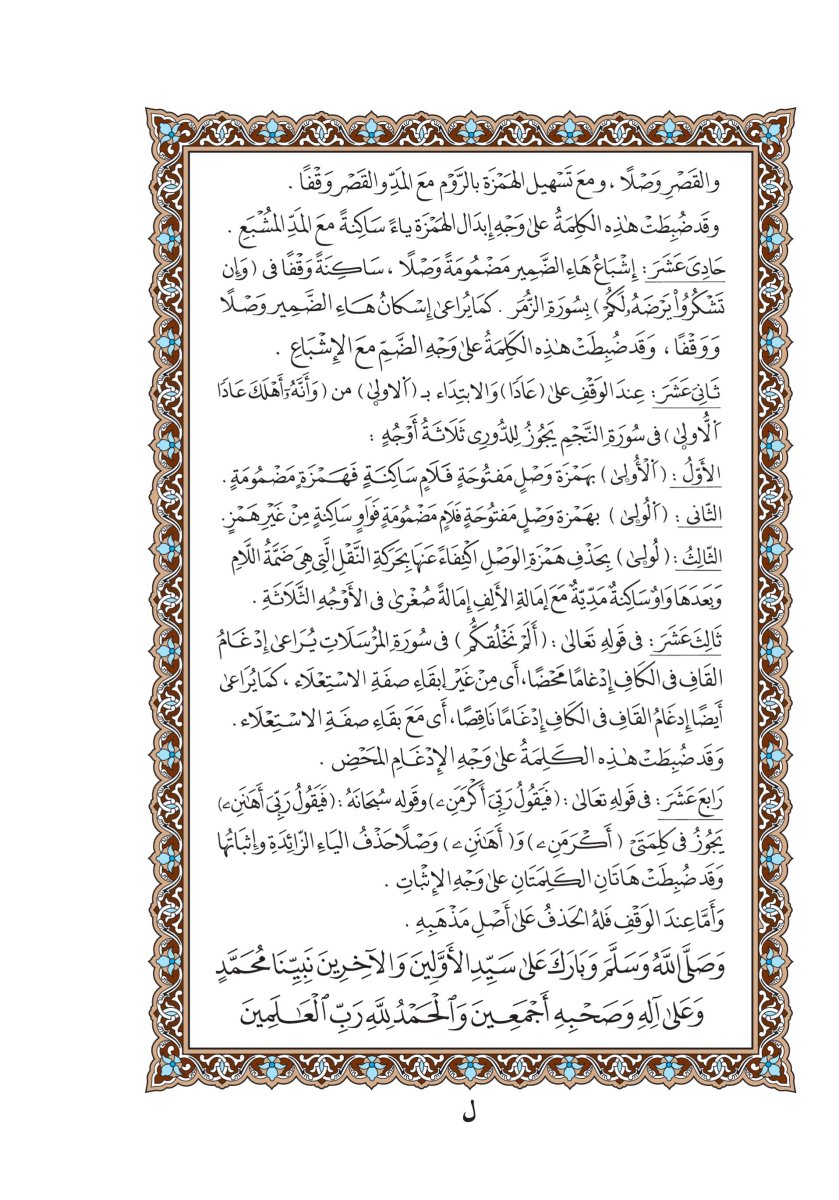 والقَصْرِ وَصْلًا ، ومعَ تَسْهيل الهَمْزَة بالرَّوْم معَ المَدِّ والقَصْر وَقْفًا .
وقَد ضُبِطَتْ هٰذِه الكَلِمَةُ علىٰ وَجْهِ إبدَال الهَمْزَة ياءً سَاكِنةً معَ المَدِّ المشْبَع .
حَادِىَ عَشَرَ : إشْبَاعُ هَاءِ الضَّمِير مَضْمُومَةً وَصْلًا ، سَاكِنَةً وَقْفًا فى ( وَإِن
تَشْكُرُواْ يَرْضَهُۥ لَكُمْ ) بِسُورَةِ الزُّمَر . كمَا يُراعىٰ إسْكانُ هَاءِ الضَّمِير وَصْلًا
وَوَقْفًا ، وَقَد ضُبِطَتْ هٰذِه الكَلِمَةُ علىٰ وَجْهِ الضَّمِّ معَ الإشْبَاعِ .
ثَانِىَ عَشَرَ : عِندَ الوَقْفِ علىٰ ( عَادًا ) وَالابتِدَاء بـ ( اَلُاولىٰ ) من ( وَأَنَّهُۥٓ أَهْلَكَ عَادًا
اَلُّاولىٰ ) فى سُورَةِ النَّجْمِ يَجُوزُ لِلدُّورِى ثَلَاثَةُ أَوْجُهٍ :
الأَوَّلُ : ( اَلْأُولىٰ ) بِهَمْزَة وَصْلٍ مَفتُوحَةٍ فَلَامٍ سَاكِنَةٍ فَهَمْزَةٍ مَضْمُومَةٍ .
الثَّانى : ( اَلُولىٰ ) بهَمْزَة وَصْلٍ مَفتُوحَةٍ فَلَامٍ مَضْمُومَةٍ فَوَاوٍ سَاكِنةٍ مِنْ غَيْرِ هَمْزٍ.
الثَّالِثُ : ( لُولىٰ ) بِحَذفِ هَمْزَةِ الوَصْلِ اكْتِفَاءً عَنهَا بِحَرَكةِ النَّقْلِ الَّتِى هِىَ ضَمَّةُ اللَّامِ
وَبَعدَهَا وَاوٌ سَاكِنةٌ مَدِّيَّةٌ مَعَ إمَالةِ الأَلِفِ إمَالَةً صُغْرىٰ فى الأَوْجُهِ الثَّلَاثَةِ .
ثَالِثَ عَشَرَ : فى قَولِهِ تَعَالىٰ : ( أَلَمْ نَخْلُقكُّم ) فى سُورَةِ المُرْسَلَاتِ يُرَاعىٰ إدْغَامُ
القَافِ فى الكَافِ إدْغامًا مَحْضًا، أَى مِنْ غَيْرِ إبقَاءِ صفَةِ الاستِعْلَاء ، كمَا يُرَاعىٰ
أَيضًا إدغَامُ القَافِ فى الكَافِ إدْغَامًا نَاقِصًا، أَى مَعَ بقَاءِ صفَةِ الاسْتِعْلَاء .
وَقَد ضُبِطَتْ هٰذِه الكَلِمَةُ علىٰ وَجْهِ الإدْغَامِ المَحْضِ .
رَابِعَ عَشَرَ : فى قَولِهِ تَعَالىٰ : ( فَيَقُولُ رَبِّىَ أَكْرَمَنِۦ ) وقَوله سُبحَانَهُ : ( فَيَقُولُ رَبِّىَ أَهَٰنَنِۦ )
يَجُوزُ فى كلِمَتَىْ ( أَكْرَمَنِۦ ) وَ( أَهَٰنَنِۦ ) وَصْلًا حَذْفُ اليَاءِ الزَّائِدَةِ وإثبَاتُها
وَقَد ضُبِطَتْ هَاتَانِ الكَلِمَتَانِ علىٰ وَجْهِ الإثْبَاتِ .
وَأَمَّا عِندَ الوَقْفِ فَلهُ الحَذفُ عَلىٰ أَصْلِ مَذْهَبِهِ .
وَصَلَّى اللَّهُ وَسَلَّمَ وَبَارَكَ عَلىٰ سَيِّدِ الأَوَّلِينَ وَالآخِرِينَ نَبِيِّنَا مُحَمَّدٍ
وَعَلىٰ آلِهِ وَصَحْبِهِ أَجْمَعِينَ وَٱلْحَمْدُ لِلَّهِ رَبِّ ٱلْعَٰلَمِينَ
ل